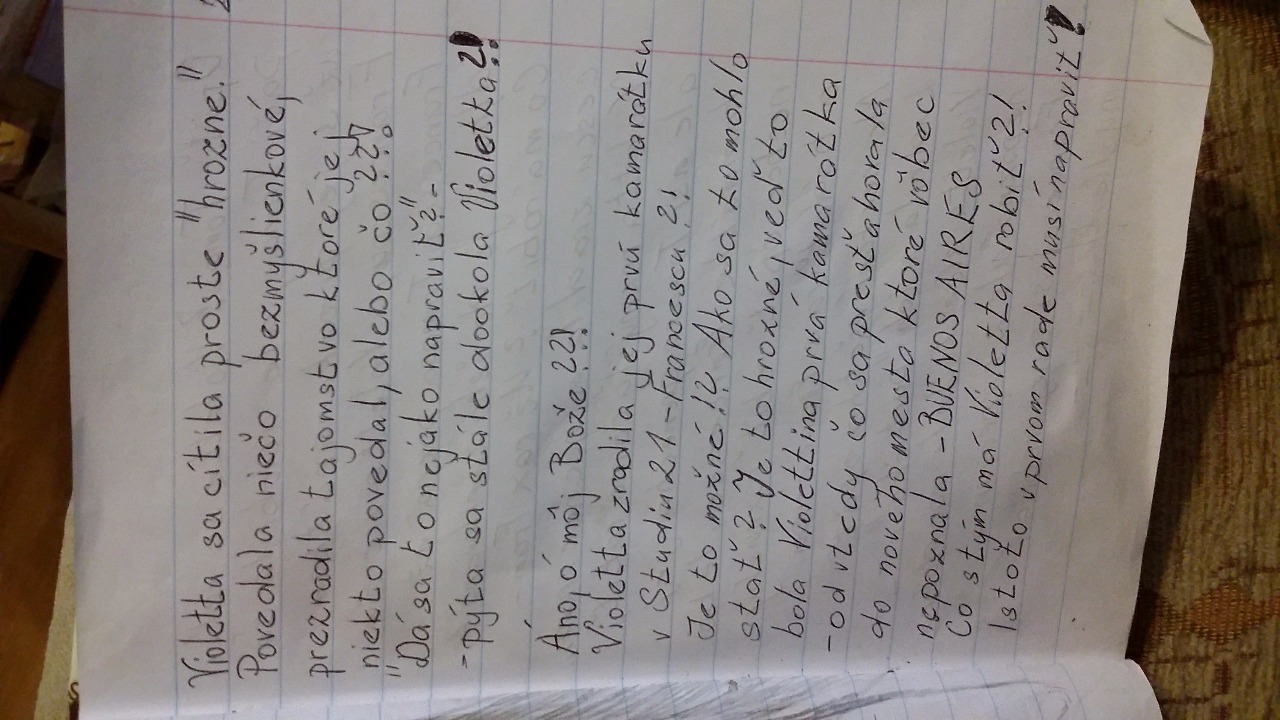 Violetta sa cítila proste "hrozne."
Povedala niečo bezmyšlienkové,
prezradila tajomstvo ktoré jej
niekto povedal, alebo čo ???!
"Dá sa to nejáko napraviť?"-
-pýta sa stále dookola Violetka?!
Áno, ó môj Bože ??!!
Violetta zradila jej prvú kamarátku
v Studiu 21 - Francescu ?!
Je to možné!? Ako sa to mohlo
stať? Je to hrozné, veď to
bola Violettina prvá kamarátka
-od vtedy čo sa presťahovala
do nového mesta ktoré vôbec
nepoznala - BUENOS AIRES
Čo stým má Violetta robiť?!
Istoto v prvom rade musí napraviť!